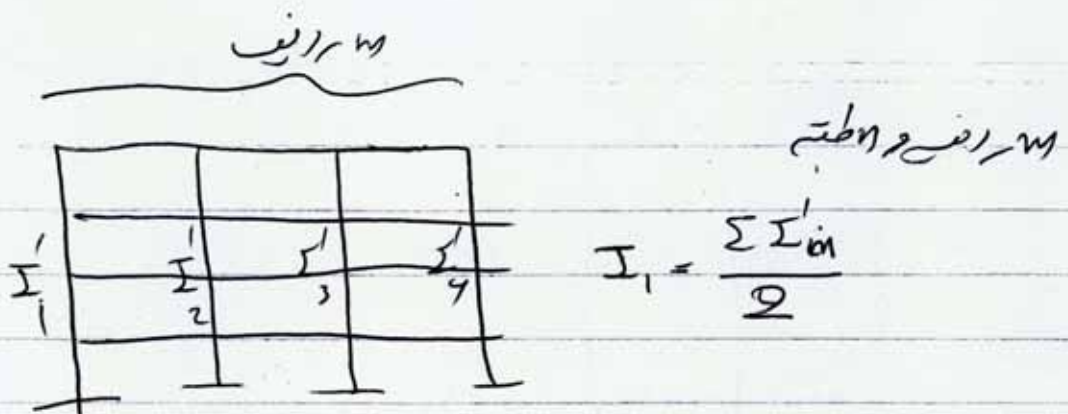 m ردیف
m ردیف و n طبقه
I'₁ I'₂ I'₃ I'₄
I₁ = ΣI'in / 2